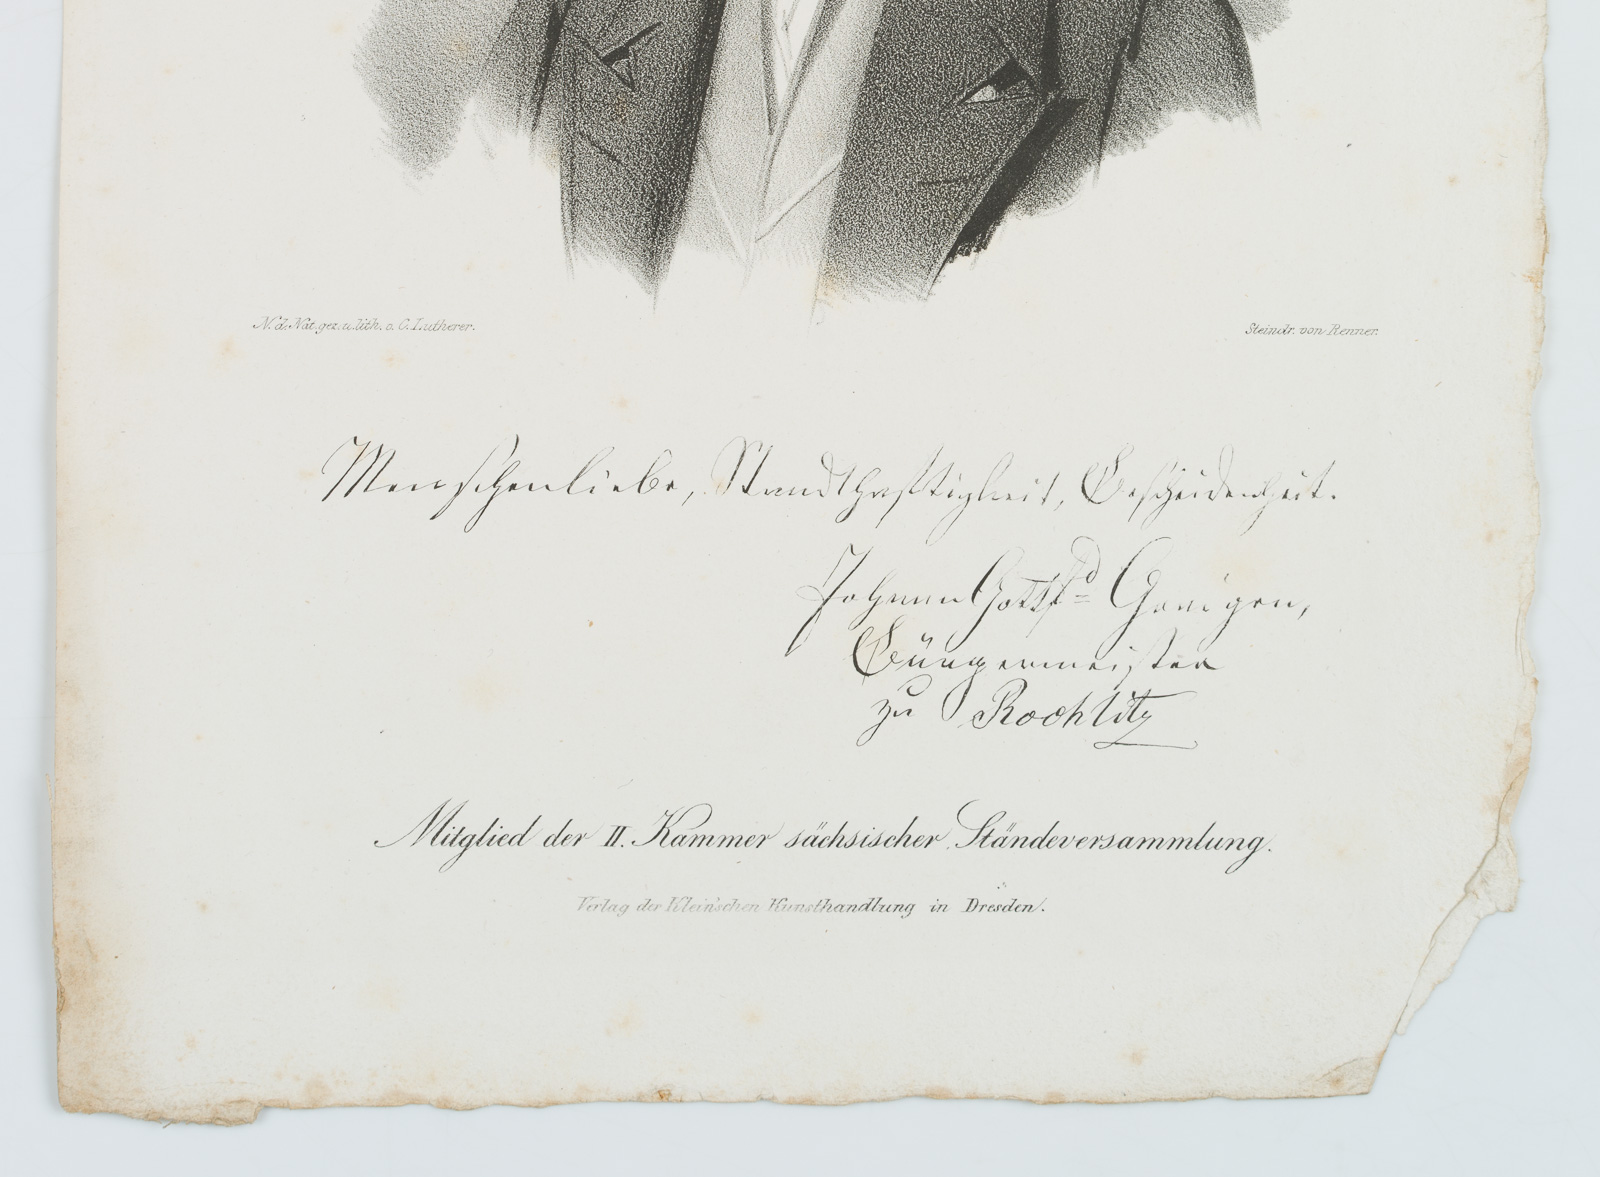 N. d. Nat. gez. u. lith. v. C. Lutherer.
Steindr. von Renner.
Menschenliebe, Standhaftigkeit, Bescheidenheit.
Johann Gottf<sup>d</sup>
Bürgermeister
zu Rochlitz
Mitglied der II. Kammer sächsischer Ständeversammlung.
Verlag der Klein'schen Kunsthandlung in Dresden.